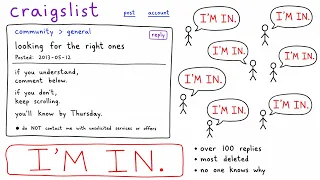 craigslist
post account
community > general
reply
looking for the right ones
Posted: 2013-05-12
if you understand,
comment below.
if you don't,
keep scrolling.
you'll know by Thursday.
• do NOT contact me with unsolicited services or offers
I'M IN.
I'M IN.
I'M IN.
I'M IN.
I'M IN.
I'M IN.
I'M IN.
I'M IN.
• over 100 replies
• most deleted
• no one knows why